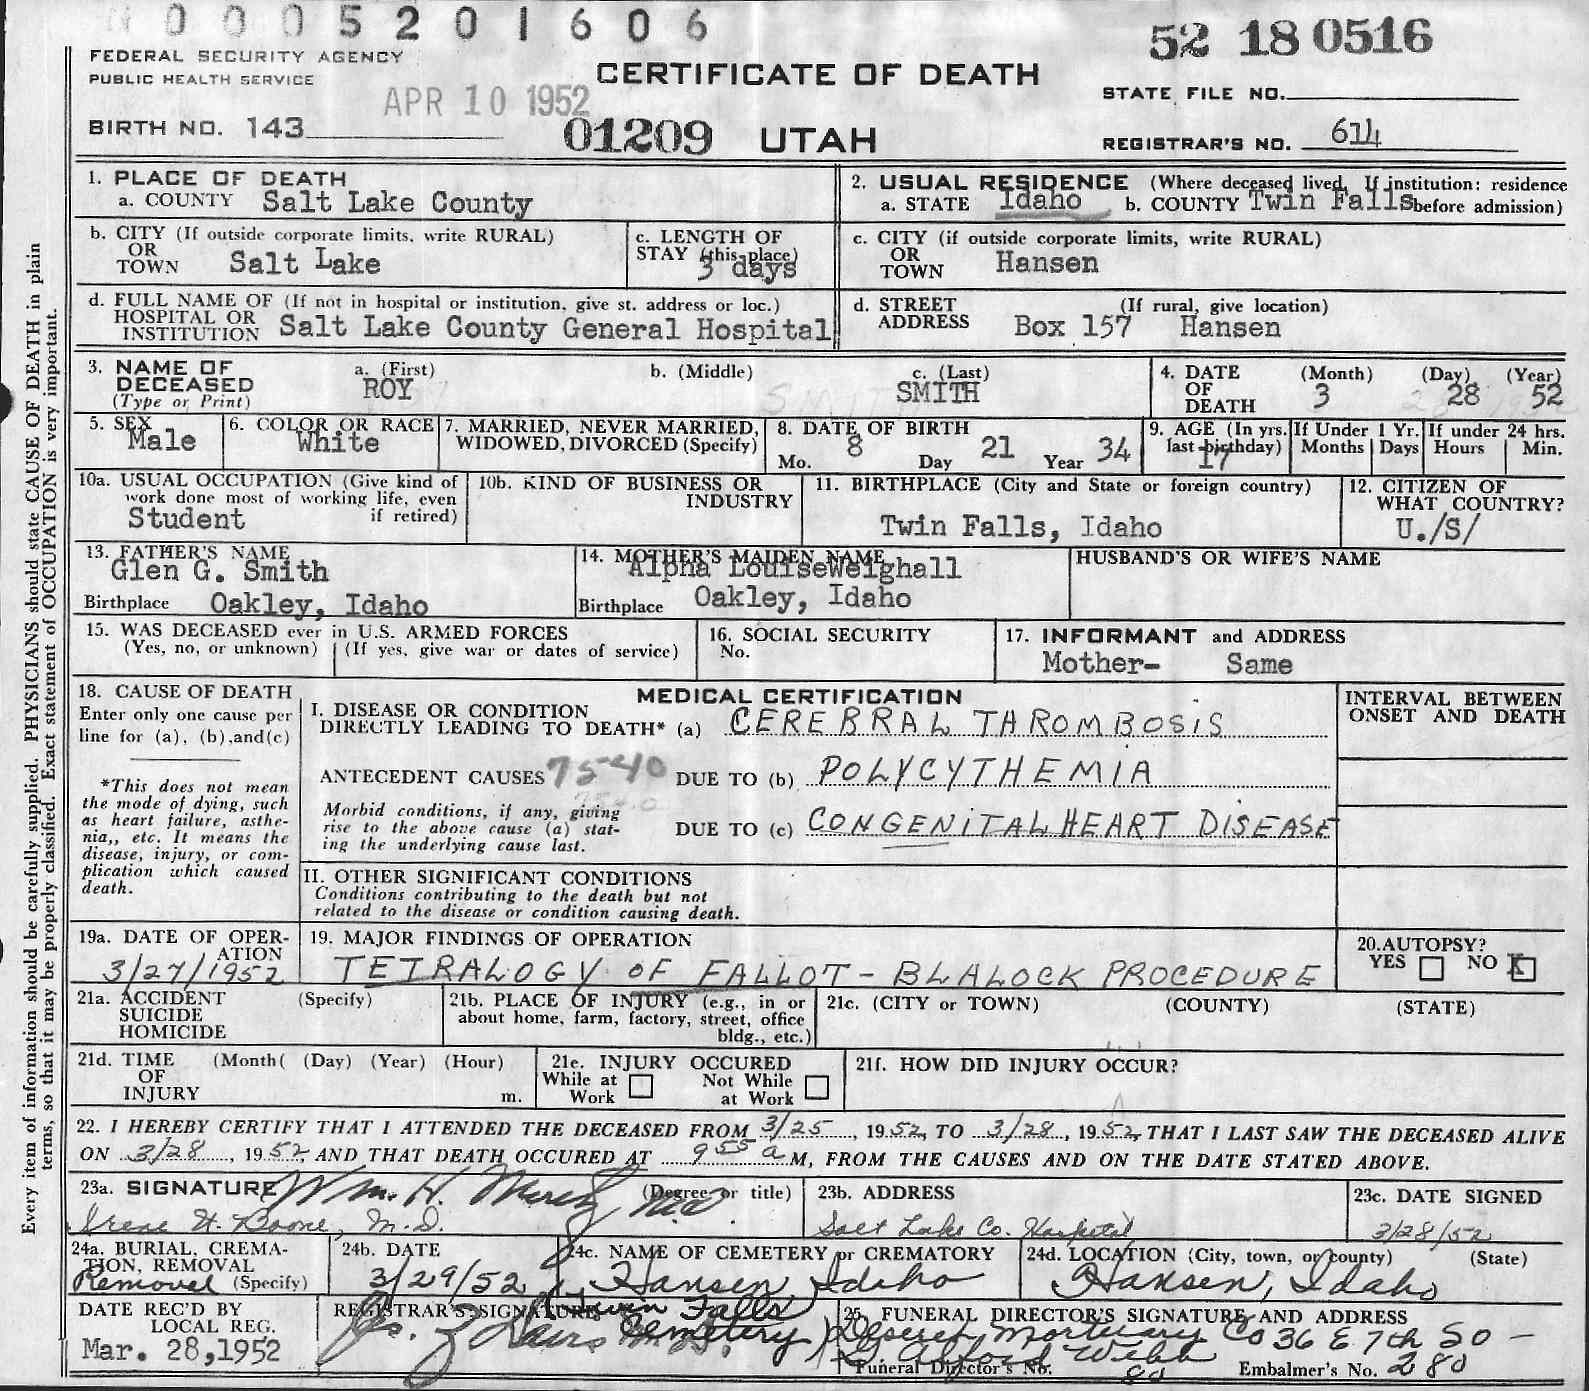 0 0 0 5 2 0 1 6 0 6
52 18 0516
FEDERAL SECURITY AGENCY
PUBLIC HEALTH SERVICE
CERTIFICATE OF DEATH
STATE FILE NO.
APR 10 1952
BIRTH NO. 143
01209 UTAH
REGISTRAR'S NO. 614
Every item of information should be carefully supplied. PHYSICIANS should state CAUSE OF DEATH in plain
terms, so that it may be properly classified. Exact statement of OCCUPATION is very important.
1. PLACE OF DEATH
a. COUNTY Salt Lake County
2. USUAL RESIDENCE (Where deceased lived. If institution: residence
a. STATE Idaho b. COUNTY Twin Falls before admission)
b. CITY (If outside corporate limits, write RURAL)
OR
TOWN Salt Lake
c. LENGTH OF
STAY (this place)
3 days
c. CITY (if outside corporate limits, write RURAL)
OR
TOWN Hansen
d. FULL NAME OF (If not in hospital or institution, give st. address or loc.)
HOSPITAL OR
INSTITUTION Salt Lake County General Hospital
d. STREET (If rural, give location)
ADDRESS Box 157 Hansen
3. NAME OF
DECEASED
(Type or Print)
a. (First)
ROY
b. (Middle)
c. (Last)
SMITH
4. DATE
OF
DEATH
(Month) (Day) (Year)
3 28 52
5. SEX
Male
6. COLOR OR RACE
White
7. MARRIED, NEVER MARRIED,
WIDOWED, DIVORCED (Specify)
8. DATE OF BIRTH
Mo. 8 Day 21 Year 34
9. AGE (In yrs.
last birthday)
17
If Under 1 Yr.
Months Days
If under 24 hrs.
Hours Min.
10a. USUAL OCCUPATION (Give kind of
work done most of working life, even
Student if retired)
10b. KIND OF BUSINESS OR
INDUSTRY
11. BIRTHPLACE (City and State or foreign country)
Twin Falls, Idaho
12. CITIZEN OF
WHAT COUNTRY?
U./S/
13. FATHER'S NAME
Glen G. Smith
Birthplace Oakley, Idaho
14. MOTHER'S MAIDEN NAME
Alpha LouiseWeighall
Birthplace Oakley, Idaho
HUSBAND'S OR WIFE'S NAME
15. WAS DECEASED ever in U.S. ARMED FORCES
(Yes, no, or unknown) (If yes, give war or dates of service)
16. SOCIAL SECURITY
No.
17. INFORMANT and ADDRESS
Mother- Same
18. CAUSE OF DEATH
Enter only one cause per
line for (a), (b),and(c)
*This does not mean
the mode of dying, such
as heart failure, asthe-
nia,, etc. It means the
disease, injury, or com-
plication which caused
death.
MEDICAL CERTIFICATION
I. DISEASE OR CONDITION
DIRECTLY LEADING TO DEATH* (a) CEREBRAL THROMBOSIS
ANTECEDENT CAUSES 7540 DUE TO (b) POLYCYTHEMIA
Morbid conditions, if any, giving
rise to the above cause (a) stat-
ing the underlying cause last.
754.0
DUE TO (c) CONGENITAL HEART DISEASE
INTERVAL BETWEEN
ONSET AND DEATH
II. OTHER SIGNIFICANT CONDITIONS
Conditions contributing to the death but not
related to the disease or condition causing death.
19a. DATE OF OPER-
ATION
3/27/1952
19. MAJOR FINDINGS OF OPERATION
TETRALOGY OF FALLOT - BLALOCK PROCEDURE
20.AUTOPSY?
YES NO X
21a. ACCIDENT (Specify)
SUICIDE
HOMICIDE
21b. PLACE OF INJURY (e.g., in or
about home, farm, factory, street, office
bldg., etc.)
21c. (CITY or TOWN) (COUNTY) (STATE)
21d. TIME (Month( (Day) (Year) (Hour)
OF
INJURY m.
21e. INJURY OCCURED
While at Work
Not While at Work
21f. HOW DID INJURY OCCUR?
22. I HEREBY CERTIFY THAT I ATTENDED THE DECEASED FROM 3/25, 1952, TO 3/28, 1952, THAT I LAST SAW THE DECEASED ALIVE
ON 3/28, 1952 AND THAT DEATH OCCURED AT 9 55 a M, FROM THE CAUSES AND ON THE DATE STATED ABOVE.
23a. SIGNATURE Wm. H. (Degree or title)
Irene H. Boone, M.D.
23b. ADDRESS
Salt Lake Co. Hospital
23c. DATE SIGNED
3/28/52
24a. BURIAL, CREMA-
TION, REMOVAL
Removal (Specify)
24b. DATE
3/29/52
24c. NAME OF CEMETERY or CREMATORY
Hansen, Idaho
24d. LOCATION (City, town, or county) (State)
Hansen, Idaho
DATE REC'D BY
LOCAL REG.
Mar. 28,1952
REGISTRAR'S SIGNATURE
Twin Falls
Cemetery
25. FUNERAL DIRECTOR'S SIGNATURE AND ADDRESS
Deseret Mortuary Co 36 E 7th So -
Webb
Funeral Director's No. 80 Embalmer's No. 280